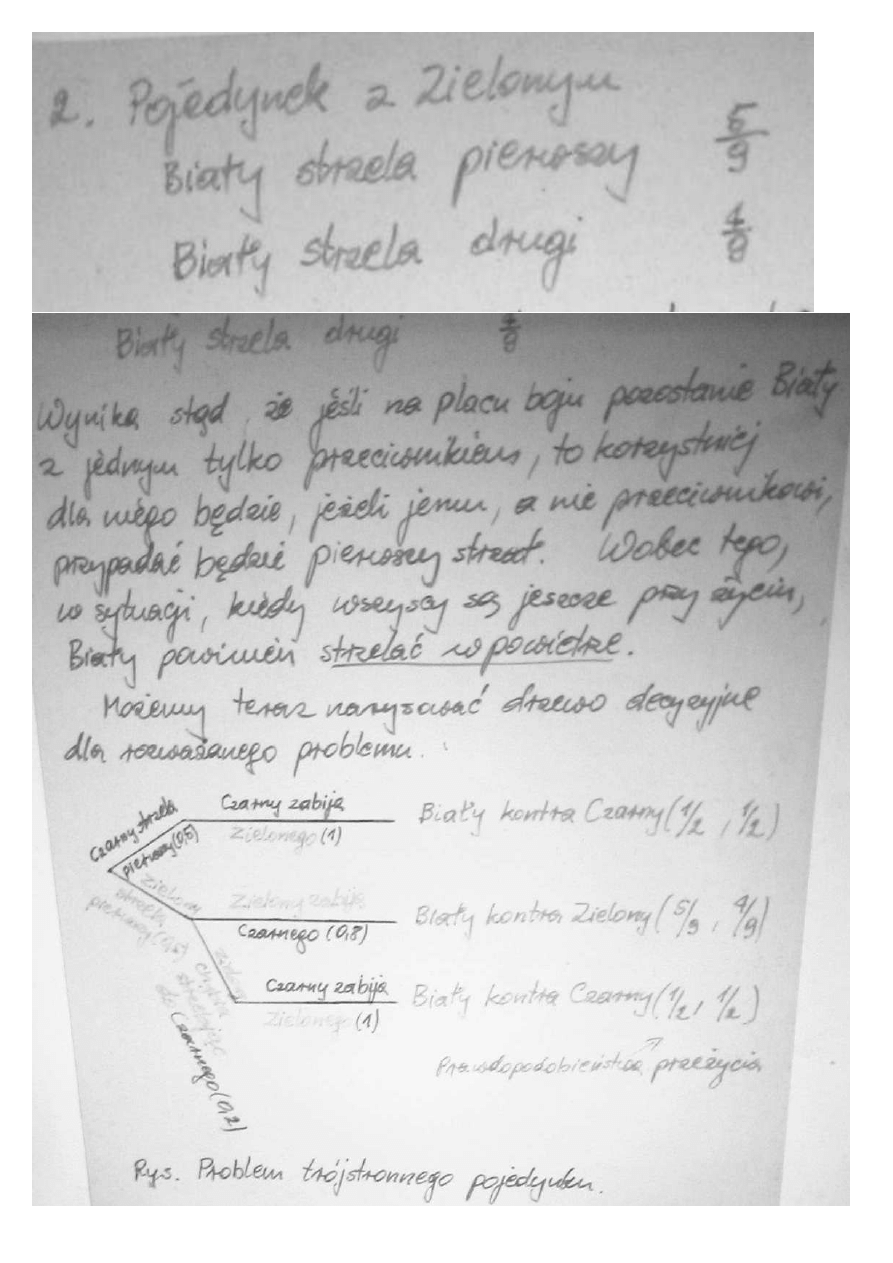 2. Pojedynek z Zielonym
Biały strzela pierwszy 5/9
Biały strzela drugi 4/9
Biały strzela drugi 4/9
Wynika stąd, że jeśli na placu boju pozostanie Biały
z jednym tylko przeciwnikiem, to korzystniej
dla niego będzie, jeżeli jemu, a nie przeciwnikowi,
przypadać będzie pierwszy strzał. Wobec tego,
w sytuacji, kiedy wszyscy są jeszcze przy życiu,
Biały powinien strzelać w powietrze.
Możemy teraz narysować drzewo decyzyjne
dla rozważanego problemu.
Czarny strzela
pierwszy (0,5)
Czarny zabija
Zielonego (1)
Biały kontra Czarny (1/2, 1/2)
Zielony
strzela
pierwszy (0,5)
Zielony zabija
Czarnego (0,8)
Biały kontra Zielony (5/9, 4/9)
Zielony
chybia
strzelając
do Czarnego (0,2)
Czarny zabija
Zielonego (1)
Biały kontra Czarny (1/2, 1/2)
Prawdopodobieństwa przeżycia
Rys. Problem trójstronnego pojedynku.